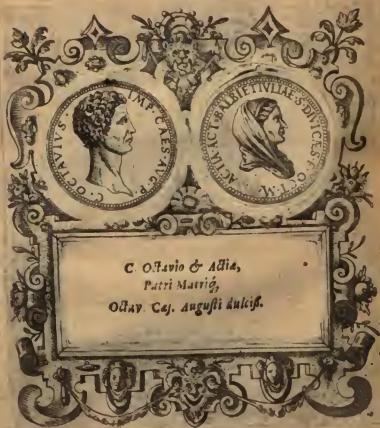 C. OCTAVIVS · IMP. CAES. AVG. P.
ACTIA. ACT. BALBI ET IVLIAE. S. DIVI. CAES.
C. Octavio & Actiæ,
Patri Matriq́,
Octav. Cæs. Augusti dulciſſ.